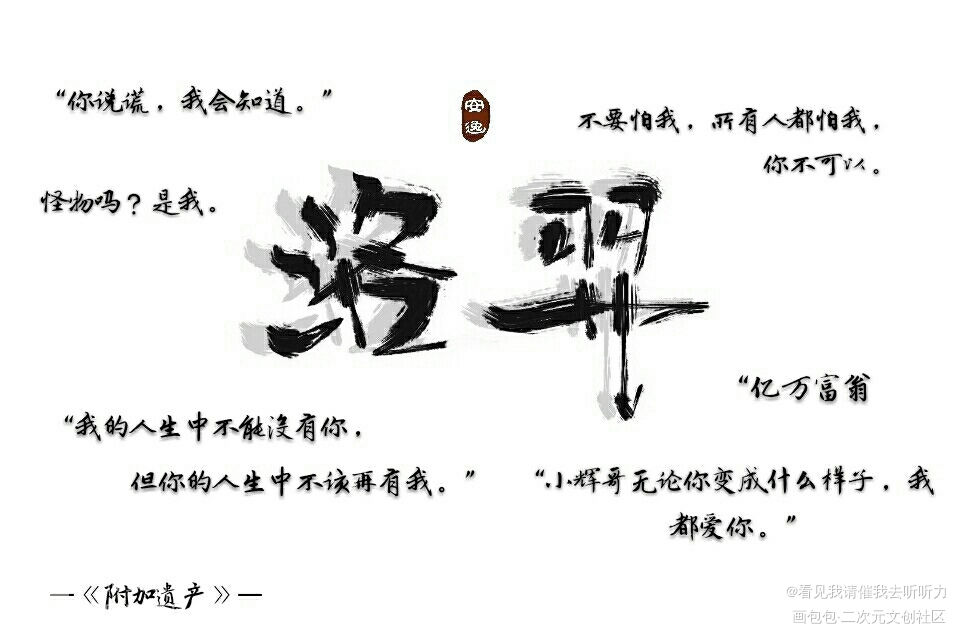 “你说谎，我会知道。”
安逸
不要怕我，所有人都怕我，
你不可以。
怪物吗？是我。
洛羿
“亿万富翁
“我的人生中不能没有你，
但你的人生中不该再有我。”
“小辉哥无论你变成什么样子，我
都爱你。”
—《附加遗产》—
@看见我请催我去听听力
画包包·二次元文创社区